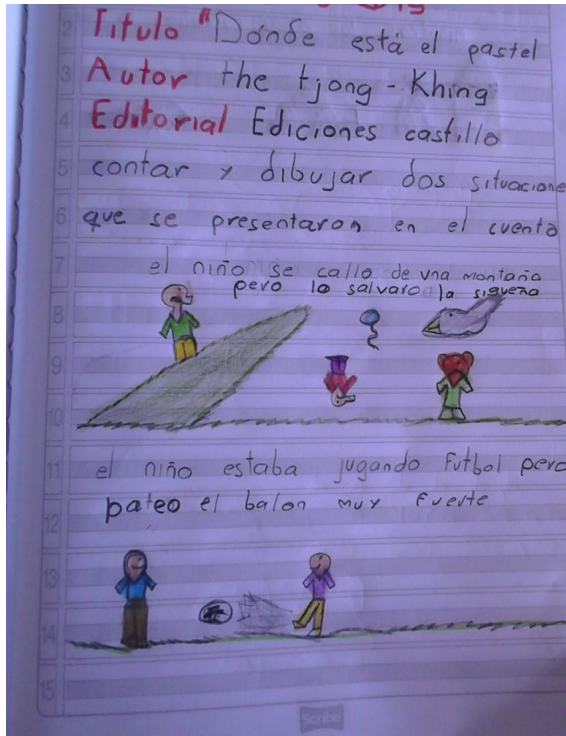 Titulo "Donde está el pastel
Autor the tjong - Khing
Editorial Ediciones castillo
contar y dibujar dos situacione
que se presentaron en el cuento
el niño se callo de una montaña
pero lo salvaro la sigueña
el niño estaba jugando futbol pero
pateo el balon muy fuerte
Scribe